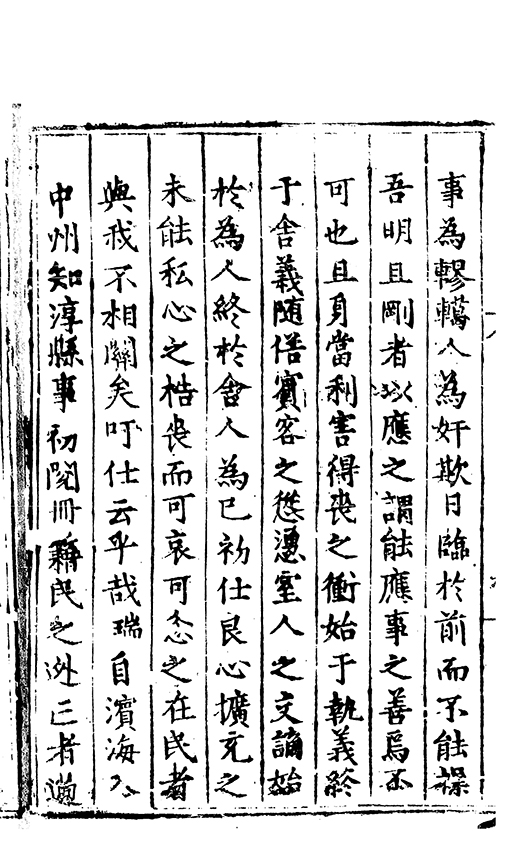 事為轇轕人為奸欺日臨於前而不能操
吾明且剛者以應之謂能應事之善焉不
可也且身當利害得喪之衝始于執義終
于舍義隨俗賓客之慫慂室人之交謫始
於為人終於舍人為已初仕良心擴充之
未能私心之梏喪而可哀可念之在民者
與我不相關矣吁仕云乎哉瑞自濱海
中州知淳縣事初閱冊籍民之外亡者過